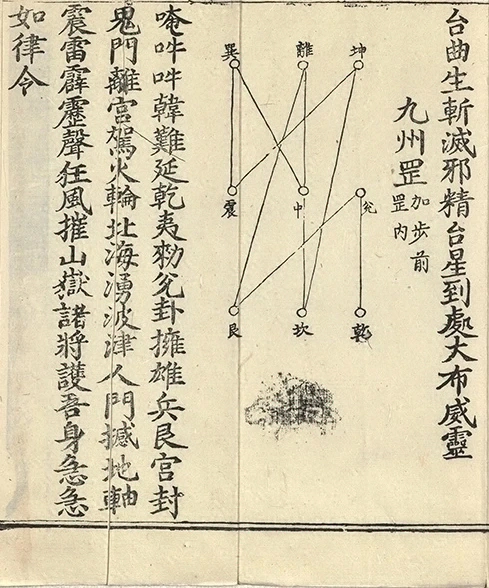 台曲生斬滅邪精台星到處大布威靈
九州罡
加步前
罡內
坤
離
巽
兌
中
震
乾
坎
艮
唵吽吽韓難延乾夷勑兌卦擁雄兵艮宮封
鬼門離宮駕火輪北海湧波津人門撼地軸
震雷霹靂聲狂風摧山嶽諸將護吾身急急
如律令